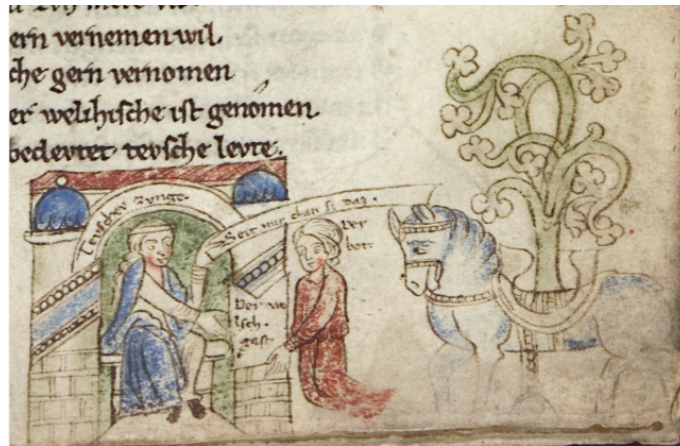 ern vernemen wil.
che gern vernomen
er welhische ist genomen.
bedevtet tevsche levte.
Tevschev zvnge.
Seit mir chan si daz.
Der
bot.
Der we
lsch.
gast.